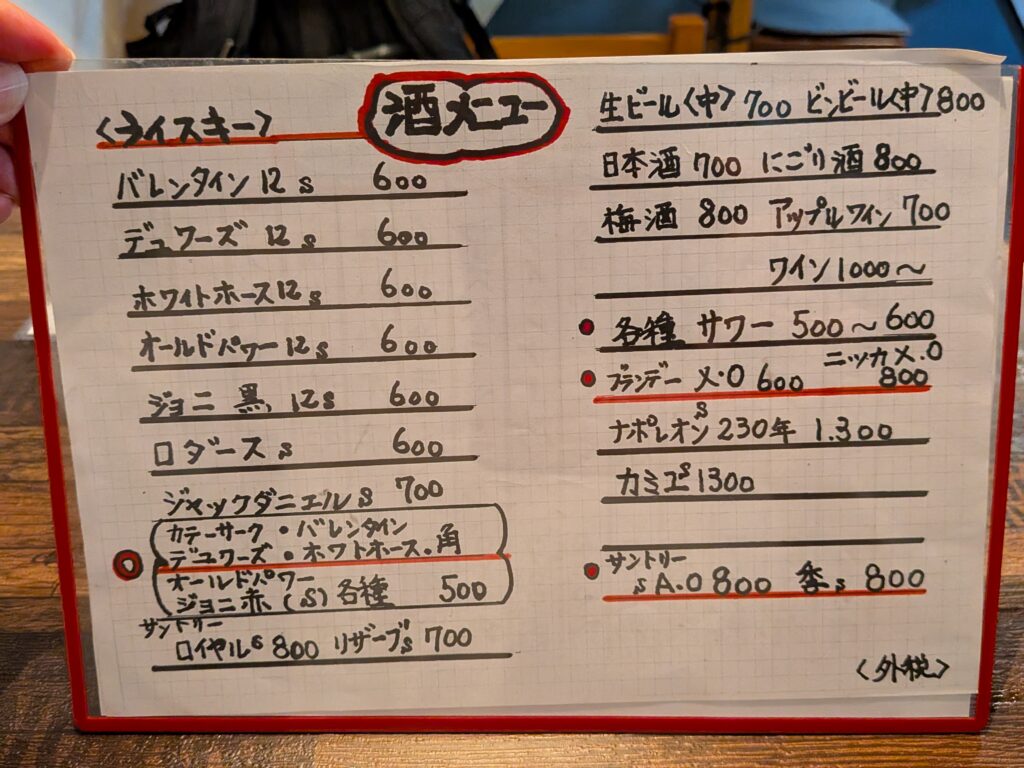 酒メニュー
〈ライスキー〉
バレンタイン 12 s 600
デュワーズ 12 s 600
ホワイトホース12 s 600
オールドパワー12 s 600
ジョニ 黒 12s 600
ロダース s 600
ジャックダニエル s 700
カテーサーク ・バレンタイン
デュワーズ ・ホワトホース・角
オールドパワー
ジョニ赤 (s) 各種 500
サントリー
ロイヤル s 800 リザーブ s 700
生ビール〈中〉 700 ビンビール〈中〉800
日本酒 700 にごり酒 800
梅酒 800 アップルワイン 700
ワイン1000〜
各種 サワー 500〜600
ブランデー X・O 600 ニッカX.O 800
ナポレオン s 230年 1.300
カミユ s 1300
サントリー
s A.O 800 季 s 800
〈外税〉